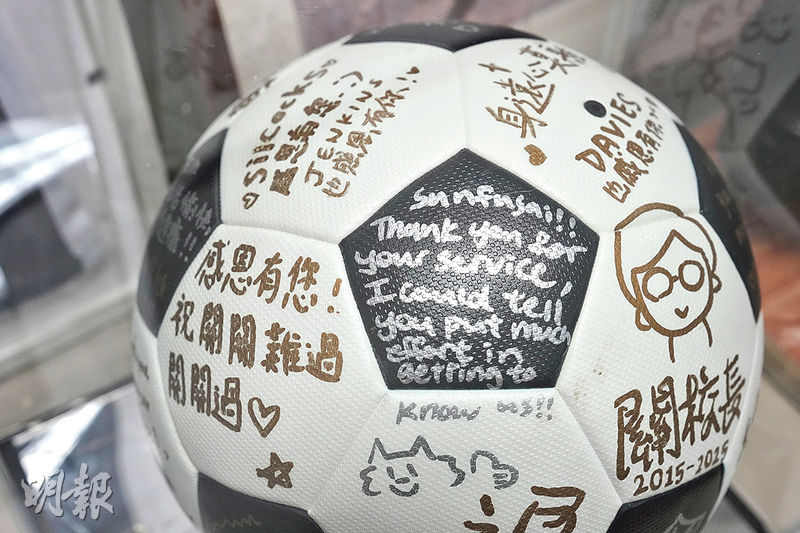 Silcocks
感恩有您 :)
JENKINS
也感恩有你!
身遠心
DAVIES
也感恩有你
sunfusai!!
Thank you for
your service,
I could tell
you put much
effort in
getting to
know us!!
感恩有您!
祝關關難過
關關過
關校長
2015-2025
明報